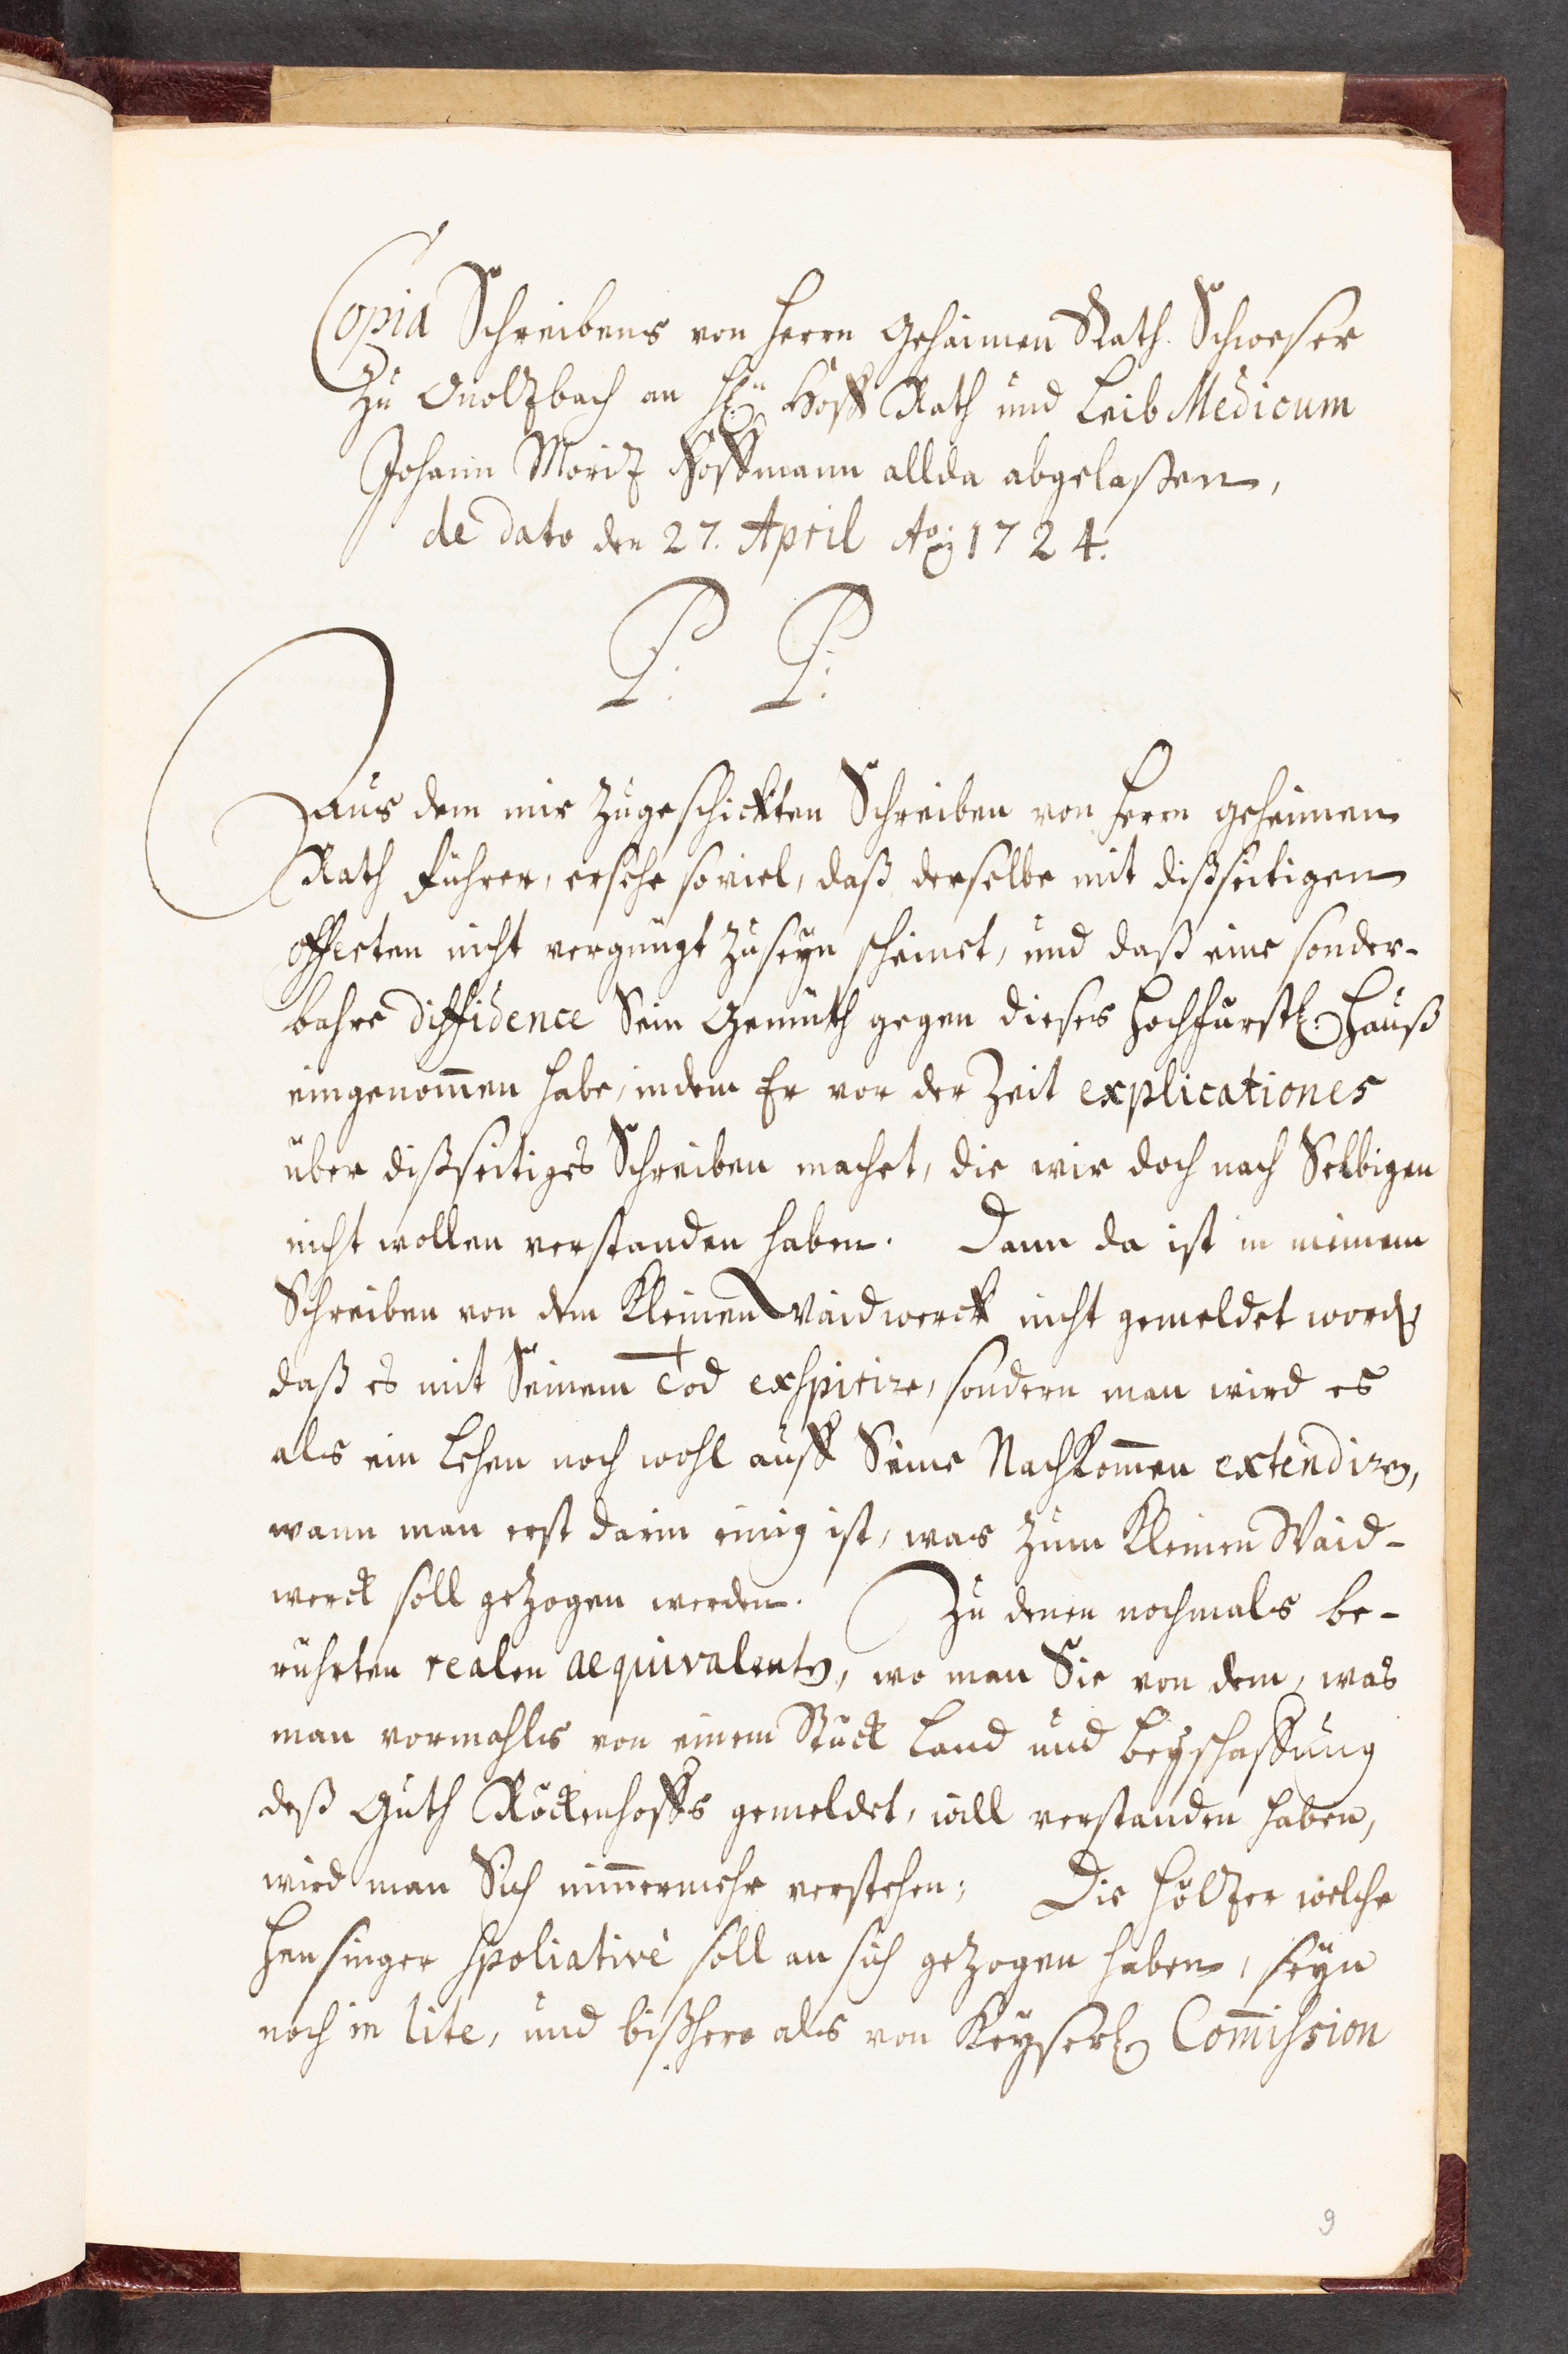 Copia Schreibens von Herrn Gehaimen Rath Schweser
Zu Onoltzbach an H: Hoff Rath und Leib Medicum
Johann Moritz Hoffmann allda abgelaßen,
de dato den 27. April Ao: 1724.
P. P:
Aus dem mir zugeschickten Schreiben von Herrn geheimen
Rath Führer, ersehe soviel, daß derselbe mit dißseitigen
offerten nicht vergnügt zuseyn scheinet, und daß eine sonder-
bahre diffidence Sein Gemüth gegen dieses Hochfürstl: Hauß
eingenom̅en habe, indem Er vor der Zeit explicationes
über dißseitiges Schreiben machet, die wir doch nach Selbigen
nicht wollen verstanden haben. Dann da ist in meinem
Schreiben von dem Kleinen Waidwerck nicht gemeldet worden
daß es mit Seinem Tod exspirire, sondern man wird es
als ein Lehen noch wohl auff Seine Nachkom̅en extendiren,
wann man erst darin einig ist, was zum Kleinen Waid-
werck soll gezogen werden. Zu denen nochmals be-
rührten realen aequivalenten, wo man Sie von dem, was
man vormahls von einem Stück Land und Beyschaffung
deß Guth Röckenhoffs gemeldet, will verstanden haben,
wird man Sich nim̅ermehr verstehen; Die Höltzer welche
Hensinger spoliativè soll an sich gezogen haben, seyn
noch in lite, und bißhero als von Keyserl: Com̅ission
9